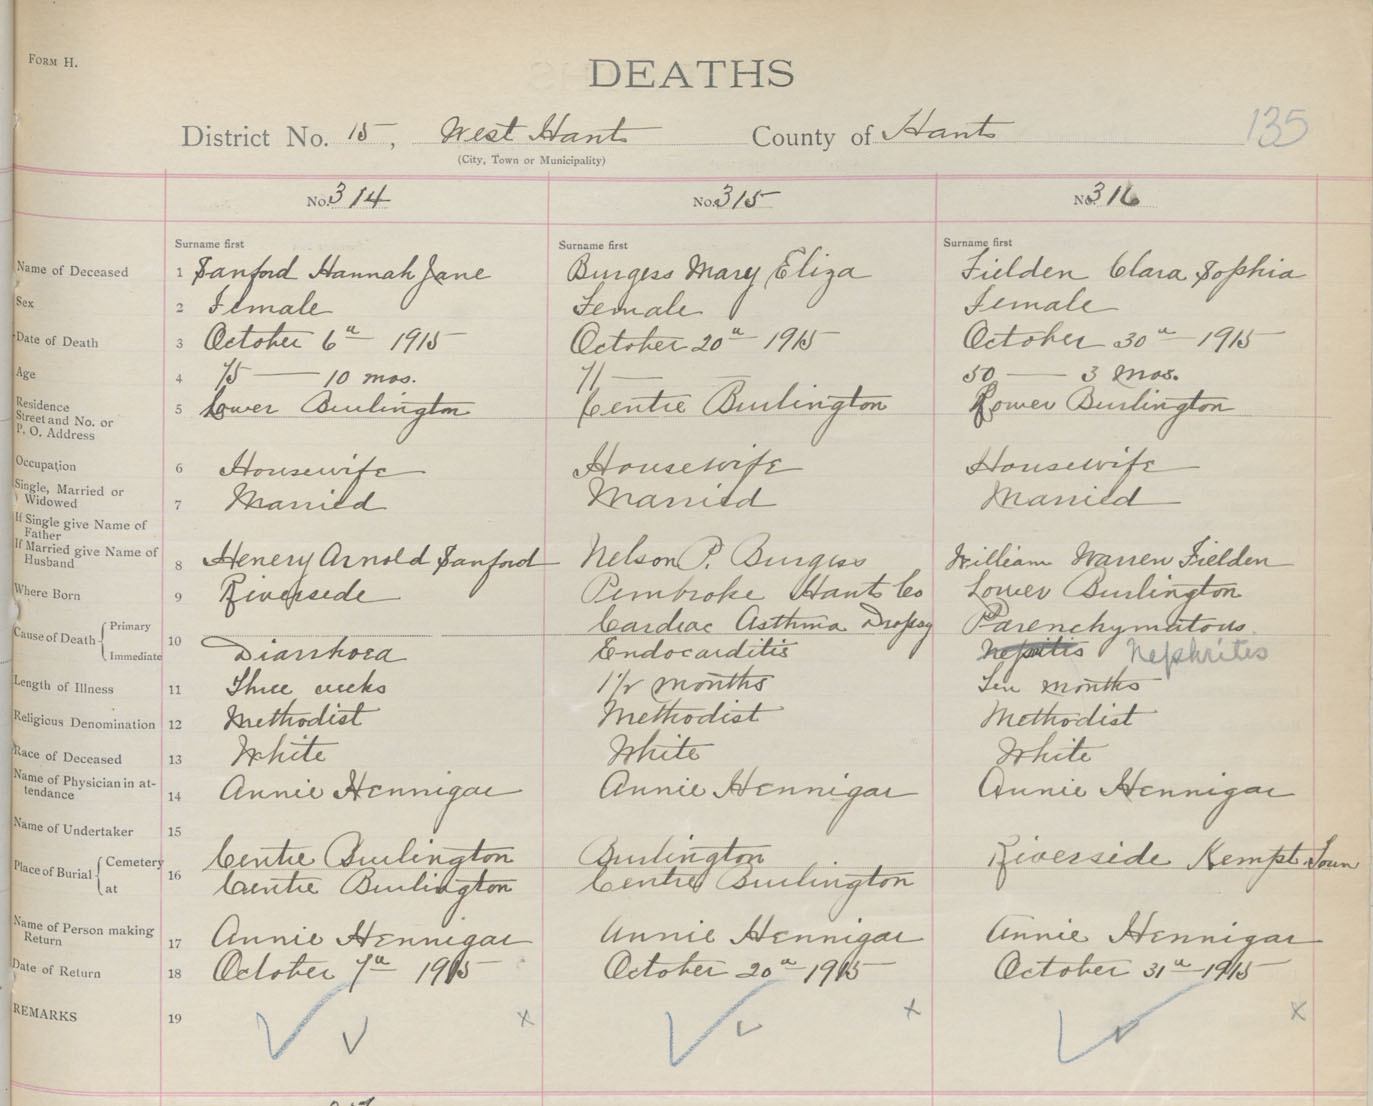 FORM H.
DEATHS
District No. 15, West Hants County of Hants 135
(City, Town or Municipality)
No. 314 No. 315 No. 316
Surname first Surname first Surname first
Name of Deceased 1 Sanford Hannah Jane Burgess Mary Eliza Fielden Clara Sophia
Sex 2 Female Female Female
Date of Death 3 October 6th 1915 October 20th 1915 October 30th 1915
Age 4 75 — 10 mos. 71 — 50 — 3 mos.
Residence
Street and No. or
P. O. Address
5 Lower Burlington Centre Burlington Lower Burlington
Occupation 6 Housewife Housewife Housewife
Single, Married or
Widowed
7 Married Married Married
If Single give Name of
Father
If Married give Name of
Husband
8 Henery Arnold Sanford Nelson P. Burgess William Warren Fielden
Where Born 9 Riverside Pembroke Hants Co Lower Burlington
Cause of Death { Primary Cardiac Asthma Dropsy Parenchymatous
Immediate 10 Diarrhoea Endocarditis Nepritis Nephrites
Length of Illness 11 Three weeks 1 1/2 months Ten months
Religious Denomination 12 Methodist Methodist Methodist
Race of Deceased 13 White White White
Name of Physician in at-
tendance
14 Annie Hennigar Annie Hennigar Annie Hennigar
Name of Undertaker 15
Place of Burial { Cemetery Centre Burlington Burlington Riverside Kempt Town
at 16 Centre Burlington Centre Burlington
Name of Person making
Return
17 Annie Hennigar Annie Hennigar Annie Hennigar
Date of Return 18 October 7th 1915 October 20th 1915 October 31st 1915
REMARKS 19 x x x